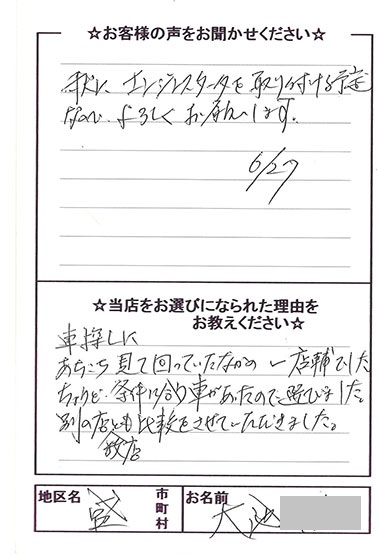 ☆お客様の声をお聞かせください☆
秋に、エンジンスターターを取り付ける予定
なので、よろしくお願いします。
6/27
☆当店をお選びになられた理由を
お教えください☆
車探しに
あちこち見て回っていたなかの一店舗でした
ちょうど、条件に合う車があったので選びました。
別の店とも比較をさせていただきました。
数店
地区名
市
町
村
お名前
大池